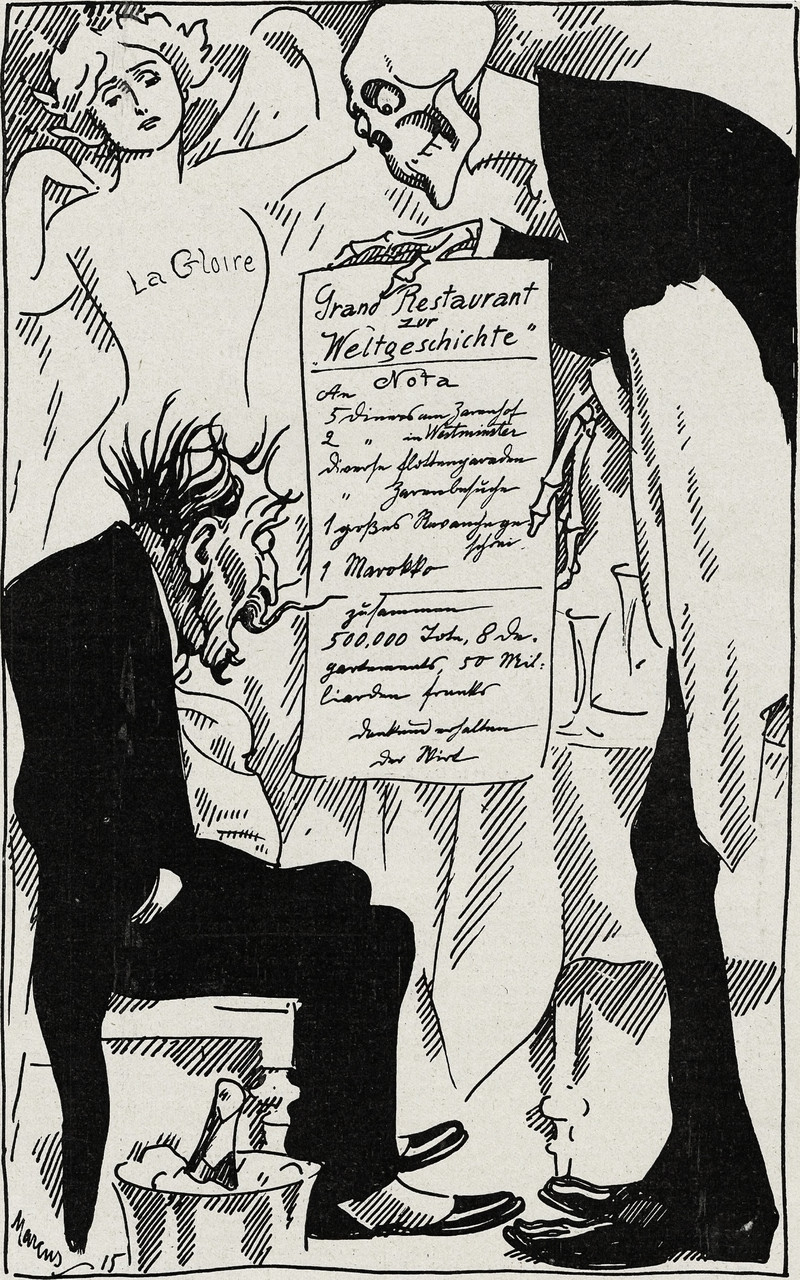 La Gloire
Grand Restaurant
zur
"Weltgeschichte"
Nota
An
5 Diners am Zarenhof
2 " in Westminster
diverse Flottenparaden
" Zarenbesuche
1 großes Revanchege-
schrei
1 Marokko
zusammen
500,000 Tote, 8 De-
partements, 50 Mil-
liarden Franks
dankend erhalten
Der Wirt
Marcus 15